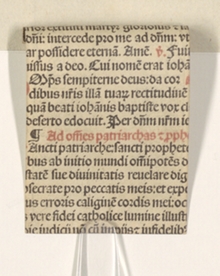 dñi: intercede pro me ad dñm: vt
ar possidere eternã. Amẽ. ℣. Fuit
issus a deo. Cui nomẽ erat iohã
Mp̃s sempiterne deus: da cor
dibus nr̃is illã tuaȝ rectitudinẽ
quã beati iohãnis baptiste vox cla
deserto edocuit. Per dñm nr̃m ie
¶ Ad om̃es patriarchas ⁊ ꝓph
Ancti patriarche: sancti prophet
bus ab initio mundi om̃ipotẽs d
state sue diuinitatis reuelare dig
secrate pro peccatis meis: et expe
us erroris caliginẽ cordis mei: oc
vere fidei catholice lumine illustr